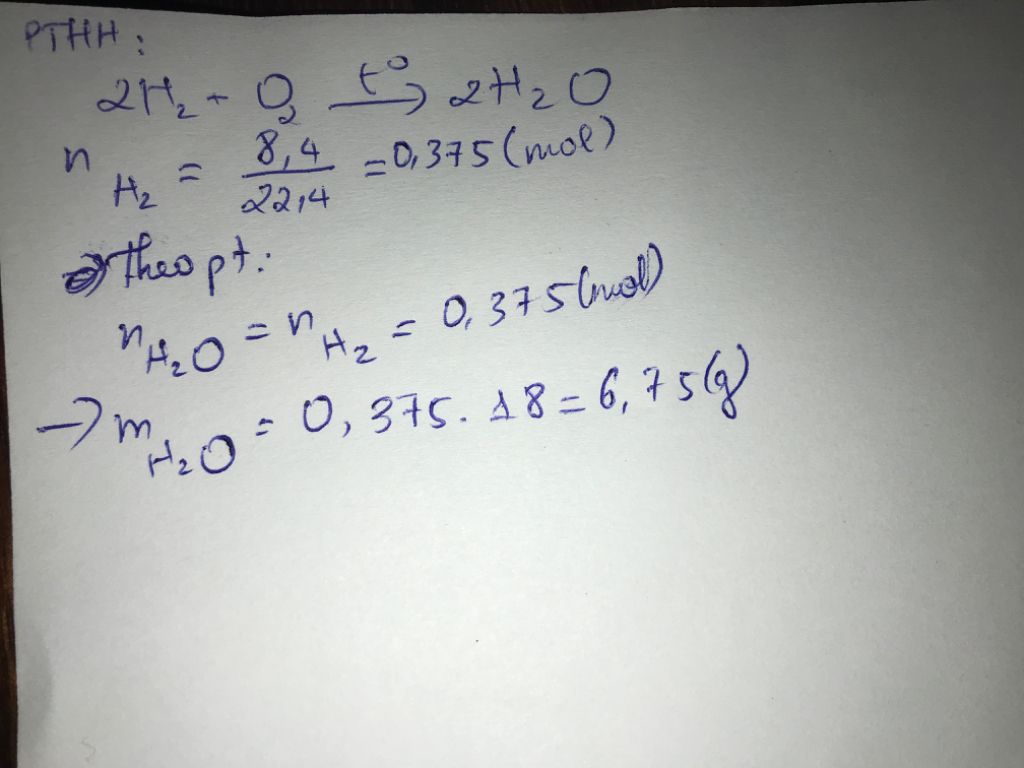 PTHH:
2H₂ + O₂ —t⁰→ 2H₂O
n H₂ = 8,4 / 22,4 = 0,375 (mol)
Theo pt:
n H₂O = n H₂ = 0,375 (mol)
→ m H₂O = 0,375 . 18 = 6,75 (g)